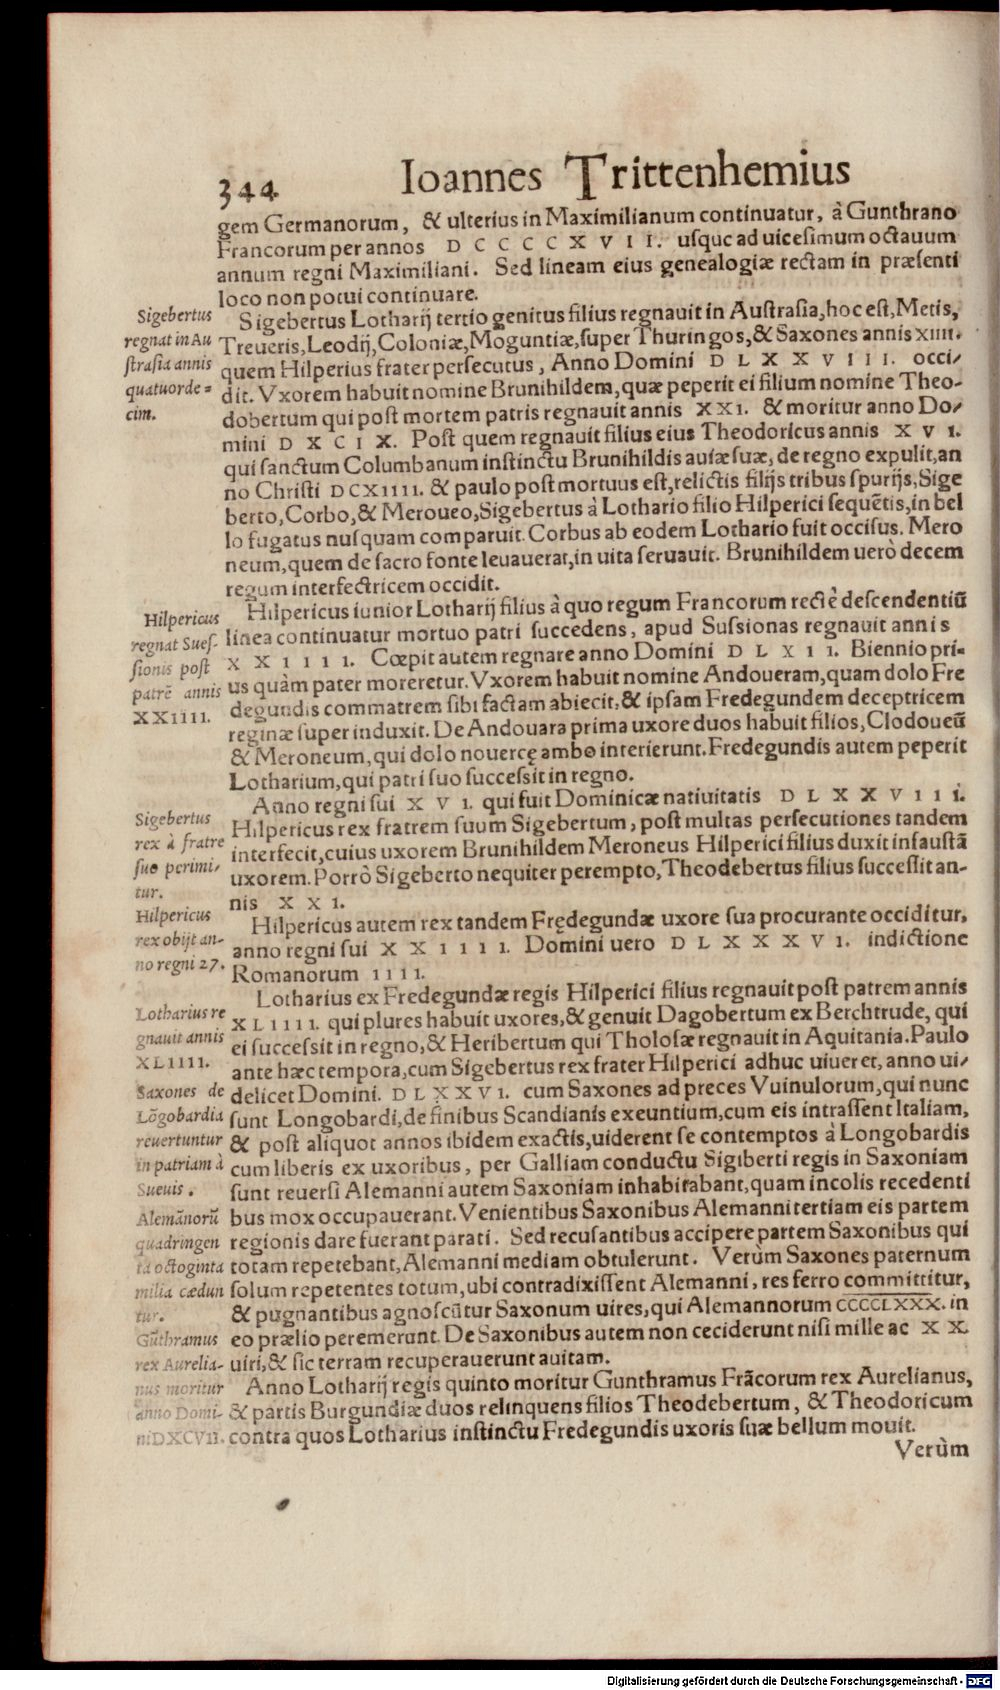 344 Ioannes Trittenhemius
gem Germanorum, & ulterius in Maximilianum continuatur, à Gunthrano
Francorum per annos D C C C C X V I I. usque ad uicesimum octauum
annum regni Maximiliani. Sed lineam eius genealogiæ rectam in præsenti
loco non potui continuare.
Sigebertus
regnat in Au
strasia annis
quatuorde=
cim.
Sigebertus Lotharij tertio genitus filius regnauit in Austrasia, hoc est, Metis,
Treueris, Leodij, Coloniæ, Moguntiæ, super Thuringos, & Saxones annis XIIII.
quem Hilperius frater persecutus, Anno Domini D L X X V I I I. occi-
dit. Vxorem habuit nomine Brunihildem, quæ peperit ei filium nomine Theo-
dobertum qui post mortem patris regnauit annis XXI. & moritur anno Do-
mini D X C I X. Post quem regnauit filius eius Theodoricus annis X V I.
qui sanctum Columbanum instinctu Brunihildis auiæ suæ, de regno expulit, an
no Christi DCXIIII. & paulo post mortuus est, relictis filijs tribus spurijs, Sige
berto, Corbo, & Meroueo, Sigebertus à Lothario filio Hilperici sequẽtis, in bel
lo fugatus nusquam comparuit. Corbus ab eodem Lothario fuit occisus. Mero
neum, quem de sacro fonte leuauerat, in uita seruauit. Brunihildem uerò decem
regum interfectricem occidit.
Hilpericus
regnat Sues-
sionis post
patrẽ annis
XXIIII.
Hilpericus iunior Lotharij filius à quo regum Francorum rectè descendentiũ
linea continuatur mortuo patri succedens, apud Sussionas regnauit annis
X X I I I I. Cœpit autem regnare anno Domini D L X I I. Biennio pri-
us quàm pater moreretur. Vxorem habuit nomine Andoueram, quam dolo Fre
degundis commatrem sibi factam abiecit, & ipsam Fredegundem deceptricem
reginæ superinduxit. De Andouara prima uxore duos habuit filios, Clodoueũ
& Meroneum, qui dolo nouercę ambo interierunt. Fredegundis autem peperit
Lotharium, qui patri suo successit in regno.
Sigebertus
rex à fratre
suo perimi-
tur.
Anno regni sui X V I. qui fuit Dominicæ natiuitatis D L X X V I I I.
Hilpericus rex fratrem suum Sigebertum, post multas persecutiones tandem
interfecit, cuius uxorem Brunihildem Meroneus Hilperici filius duxit infaustã
uxorem. Porrò Sigeberto nequiter perempto, Theodebertus filius successit an-
nis X X I.
Hilpericus
rex obijt an-
no regni 27.
Hilpericus autem rex tandem Fręgegundæ uxore sua procurante occiditur,
anno regni sui X X I I I I. Domini uero D L X X X V I. indictione
Romanorum I I I I.
Lotharius re
gnauit annis
XLIIII.
Lotharius ex Fredegundæ regis Hilperici filius regnauit post patrem annis
XLIIII. qui plures habuit uxores, & genuit Dagobertum ex Berchtrude, qui
ei successit in regno, & Heribertum qui Tholosæ regnauit in Aquitania. Paulo
ante hæc tempora, cum Sigebertus rex frater Hilperici adhuc uiueret, anno ui-
Saxones de
Lõgobardia
reuertuntur
in patriam à
Sueuis.
delicet Domini. D L X X V I. cum Saxones ad preces Vuinulorum, qui nunc
sunt Longobardi, de finibus Scandianis exeuntium, cum eis intrassent Italiam,
& post aliquot annos ibidem exactis, uiderent se contemptos à Longobardis
cum liberis ex uxoribus, per Galliam conductu Sigiberti regis in Saxoniam
sunt reuersi Alemanni autem Saxoniam inhabitabant, quam incolis recedenti
Alemãnorũ
quadringen
ta octoginta
milia cædun
tur.
bus mox occupauerant. Venientibus Saxonibus Alemanni tertiam eis partem
regionis dare fuerant parati. Sed recusantibus accipere partem Saxonibus qui
totam repetebant, Alemanni mediam obtulerunt. Verùm Saxones paternum
solum repetentes totum, ubi contradixissent Alemanni, res ferro committitur,
& pugnantibus agnoscũtur Saxonum uires, qui Alemannorum CCCCLXXX. in
Gũthramus
rex Aurelia-
nus moritur
anno Domi-
ni DXCVII.
eo prælio peremerunt. De Saxonibus autem non ceciderunt nisi mille ac X X.
uiri, & sic terram recuperauerunt auitam.
Anno Lotharij regis quinto moritur Gunthramus Frãcorum rex Aurelianus,
& partis Burgundiæ duos relinquens filios Theodebertum, & Theodoricum
contra quos Lotharius instinctu Fredegundis uxoris suæ bellum mouit.
Verùm
Digitalisierung gefördert durch die Deutsche Forschungsgemeinschaft - DFG